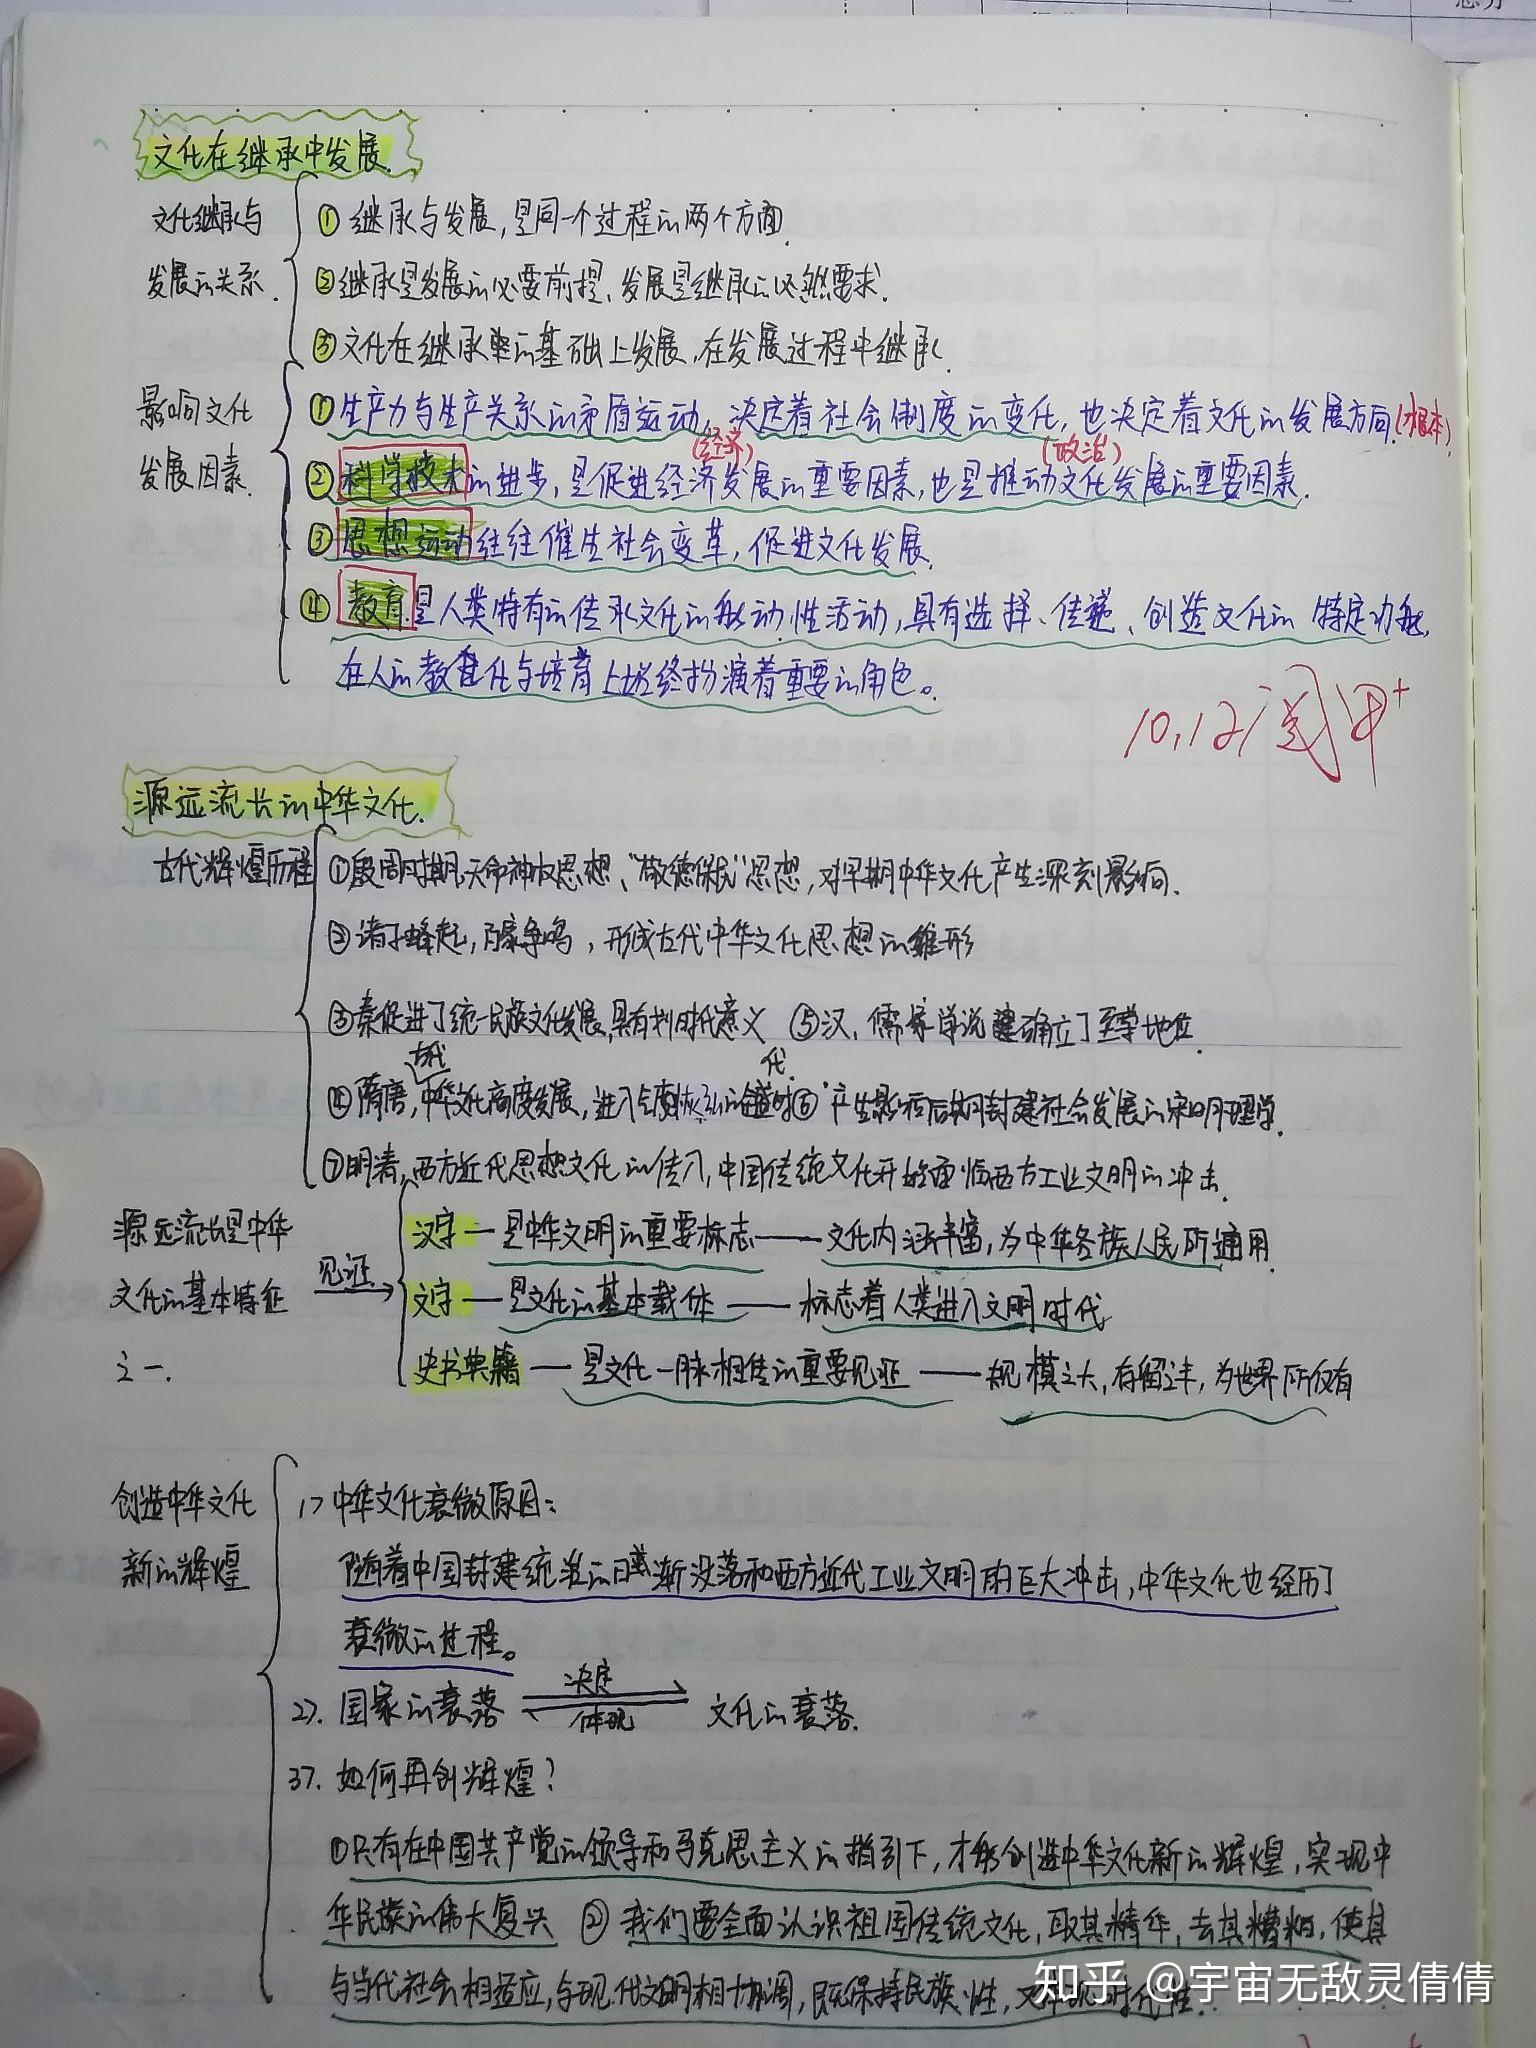 总分
文化在继承中发展.
文化继承与
发展的关系.
① 继承与发展,是同一个过程的两个方面.
②继承是发展的必要前提,发展是继承的必然要求.
③文化在继承的基础上发展,在发展过程中继承.
影响文化
发展因素.
①生产力与生产关系的矛盾运动,决定着社会制度的变化,也决定着文化的发展方向.(根本).
(经济) (政治)
②科学技术的进步,是促进经济发展的重要因素,也是推动文化发展的重要因素.
③思想运动往往催生社会变革,促进文化发展.
④ 教育是人类特有的传承文化的能动性活动,具有选择、传递、创造文化的特定功能,
在人的教化与培育上始终扮演着重要的角色。
10.12 阅 甲+
源远流长的中华文化.
古代辉煌历程
①殷周时期,天命神权思想、“敬德保民”思想,对早期中华文化产生深刻影响.
②诸子蜂起,百家争鸣,形成古代中华文化思想的雏形
③秦促进了统一民族文化发展,具有划时代意义 ⑤汉,儒家学说确立了至尊地位.
古代 代
④隋唐,中华文化高度发展,进入 ⑥产生影响后期封建社会发展的宋明理学.
⑦明清,西方近代思想文化的传入,中国传统文化开始面临西方工业文明的冲击.
源远流长是中华
文化的基本特征
之一.
见证
汉字—是中华文明的重要标志——文化内涵丰富,为中华各族人民所通用.
文字—是文化的基本载体——标志着人类进入文明时代
史书典籍—是文化一脉相传的重要见证——规模之大,存留之丰,为世界所仅有
创造中华文化
新的辉煌
1>中华文化衰微原因:
随着中国封建统治的日渐没落和西方近代工业文明的巨大冲击,中华文化也经历了
衰微的过程。
2>. 国家的衰落 决定 体现 文化的衰落.
3>. 如何再创辉煌?
①只有在中国共产党的领导和马克思主义的指引下,才能创造中华文化新的辉煌,实现中
华民族的伟大复兴 ②我们要全面认识祖国传统文化,取其精华,去其糟粕,使其
与当代社会相适应,与现代文明相协调,既保持民族性,又体现时代性.
知乎 @宇宙无敌灵倩倩